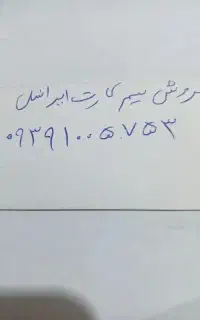 روش سیم کارت ایرانسل
۰۹۳۹۱۰۰۵۷۵۳